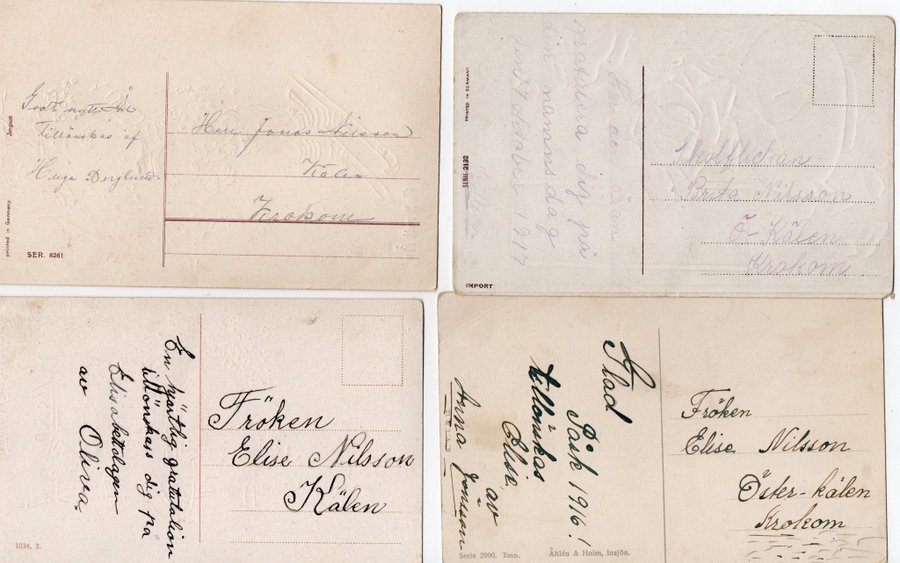 Godt nytt År
Tillönskas af
Hugo Berglund
Herr Jonas Nilsson
Kälen
Krokom
Import
printed in Germany.
SER. 8261
gratulera dig på
din namnsdag
den 7 oktober 1917
PRINTED IN GERMANY
SERIE 2132
IMPORT
Brita Nilsson
Ö-Kälen
Krokom
En hjärtlig gratulation
tillönskas dig på
Elisabetdagen
av Oliva.
Fröken
Elise Nilsson
Kälen
1034. 2.
Glad
Påsk 1916!
tillönskas
Elise
av
Anna Jonsson
Fröken
Elise Nilsson
Öster-kälen
Krokom
Serie 2990. Imp.
Åhlén & Holm, Insjön.